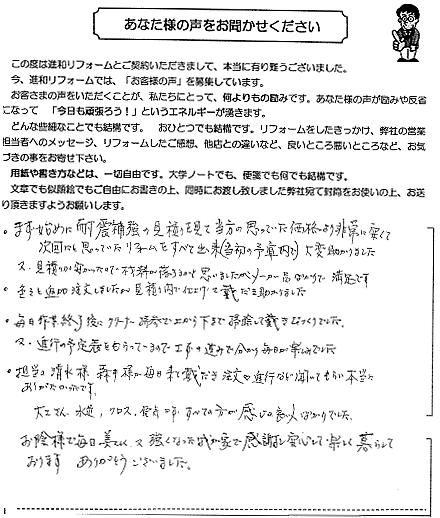 あなた様の声をお聞かせください
この度は進和リフォームとご契約いただきまして、本当に有り難うございました。
今、進和リフォームでは、「お客様の声」を募集しています。
お客さまの声をいただくことが、私たちにとって、何よりもの励みです。あなた様の声が励みや反省
になって 「今日も頑張ろう!」というエネルギーが湧きます。
どんな些細なことでも結構です。 おひとつでも結構です。リフォームをしたきっかけ、弊社の営業
担当者へのメッセージ、リフォームしたご感想、他店との違いなど、良いところ悪いところなど、お気
づきの事をお寄せ下さい。
用紙や書き方などは、一切自由です。大学ノートでも、便箋でも何でも結構です。
文章でも似顔絵でもご自由にお書きの上、同時にお渡し致しました弊社宛て封筒をお使いの上、お送
り頂きますようお願いします。
・まず始めに耐震補強の見積りを見て当方の思っていた価格より非常に安くて
次回にと思っていたリフォームをすべて出来(当初の予算内で)大変助かりました
又、見積りが安かったので材料が落ちると思いましたがメーカー品なので満足です
・色々と追加注文しましたが見積り内で仕上げて戴だき助かりました
・毎日作業終了後にクリーナー 上から下まで掃除して戴きびっくりでした。
又・進行の予定表をもらっているので工事の進みで分かり毎日が楽しみでした
・担当の清水様 森井様が毎日来て戴だき注文や進行など聞いてもらい本当に
ありがたかったです。
大工さん、水道、クロス、すべての方が感じの良い人ばかりでした。
お陰様で毎日美しく 又強くなった我が家で感謝し安心して楽しく暮らして
おります ありがとうございました。